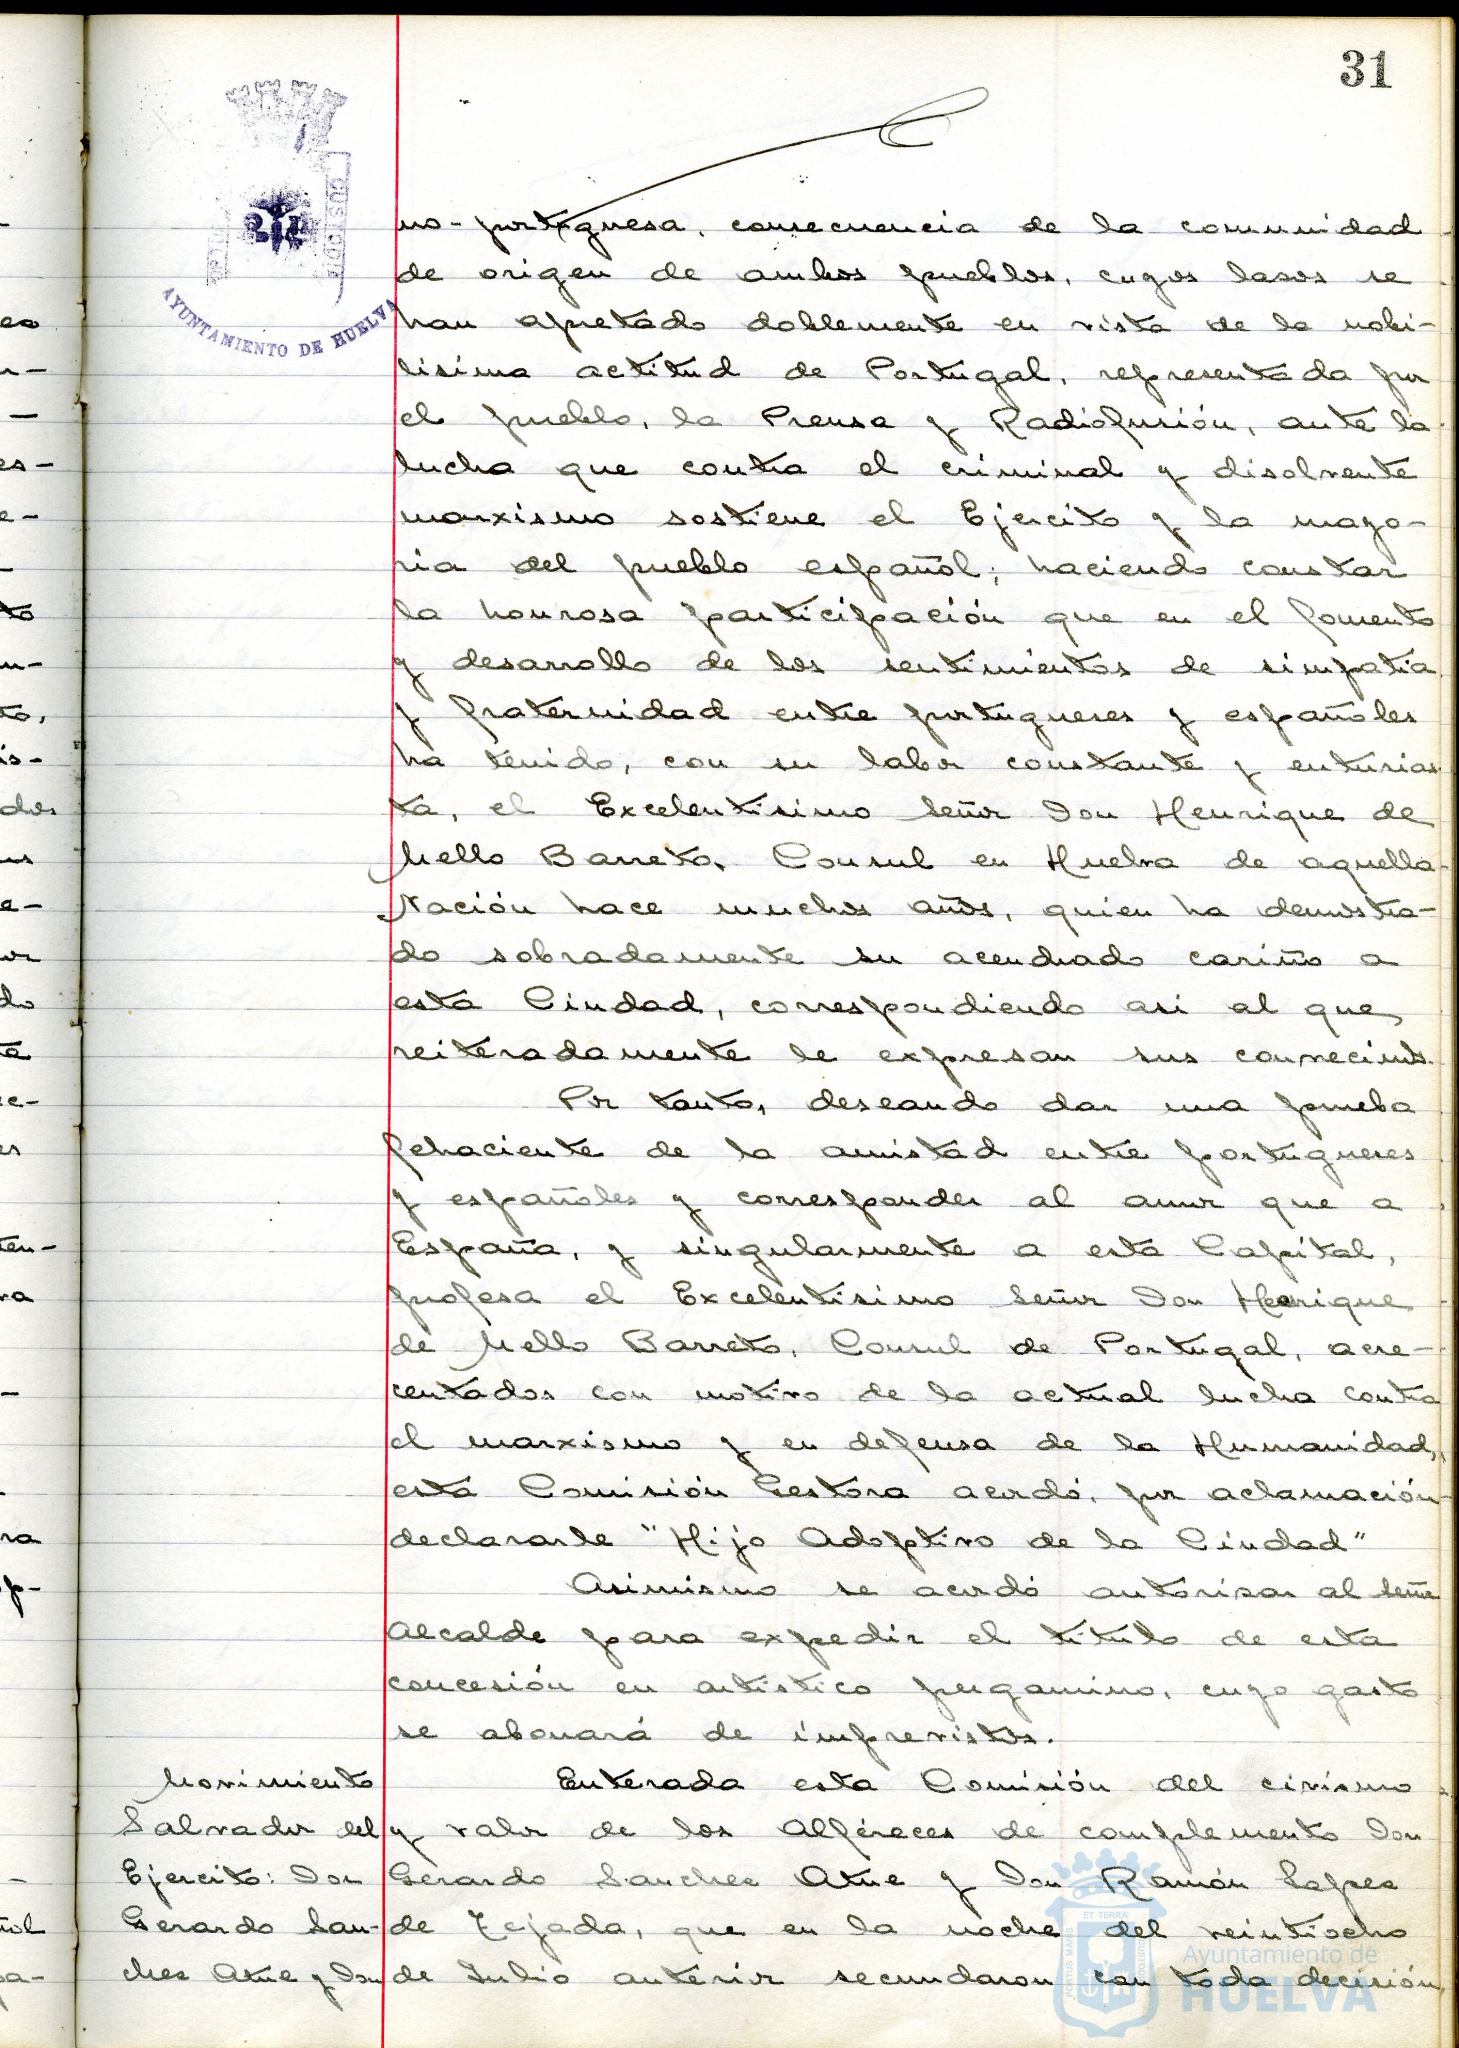 31
AYUNTAMIENTO DE HUELVA
no-portuguesa, consecuencia de la comunidad
de origen de ambos pueblos, cuyos lasos se
han apretado doblemente en vista de la nobi-
lisima actitud de Portugal, representada por
el pueblo, la Prensa y Radiofusión, ante la
lucha que contra el criminal y disolvente
marxismo sostiene el Ejercito y la mayo-
ria del pueblo español; haciendo constar
la honrosa participación que en el fomento
y desarrollo de los sentimientos de simpatia
y fraternidad entre portugueses y españoles
ha tenido, con su labor constante y entusias
ta, el Excelentisimo Señor Don Henrique de
Mello Barreto, Consul en Huelva de aquella
Nación hace muchos años, quien ha demostra-
do sobradamente su acendrado cariño a
esta Ciudad, correspondiendo asi al que
reiteradamente le expresan sus convecinos.
Por tanto, deseando dar una prueba
fehaciente de la amistad entre portugueses
y españoles y corresponder al amor que a
España, y singularmente a esta Capital,
profesa el Excelentísimo Señor Don Henrique
de Mello Barreto, Consul de Portugal, acre-
centados con motivo de la actual lucha contra
el marxismo y en defensa de la Humanidad,
esta Comisión Gestora acordó, por aclamación
declararle "Hijo Adoptivo de la Ciudad"
Asimismo se acordó autorisar al Señor
Alcalde para expedir el titulo de esta
concesión en artistico pergamino, cuyo gasto
se abonará de imprevistos.
Movimiento
Salvador del
Ejercito: Don
Gerardo San-
ches Atne y Don
Enterada esta Comisión del civismo
y valor de los Alféreces de complemento Don
Gerardo Sanches Atne y Don Ramón Lopes
de Tejada, que en la noche del veintiocho
de Julio anterior secundaron con toda decisión,
Ayuntamiento de
HUELVA